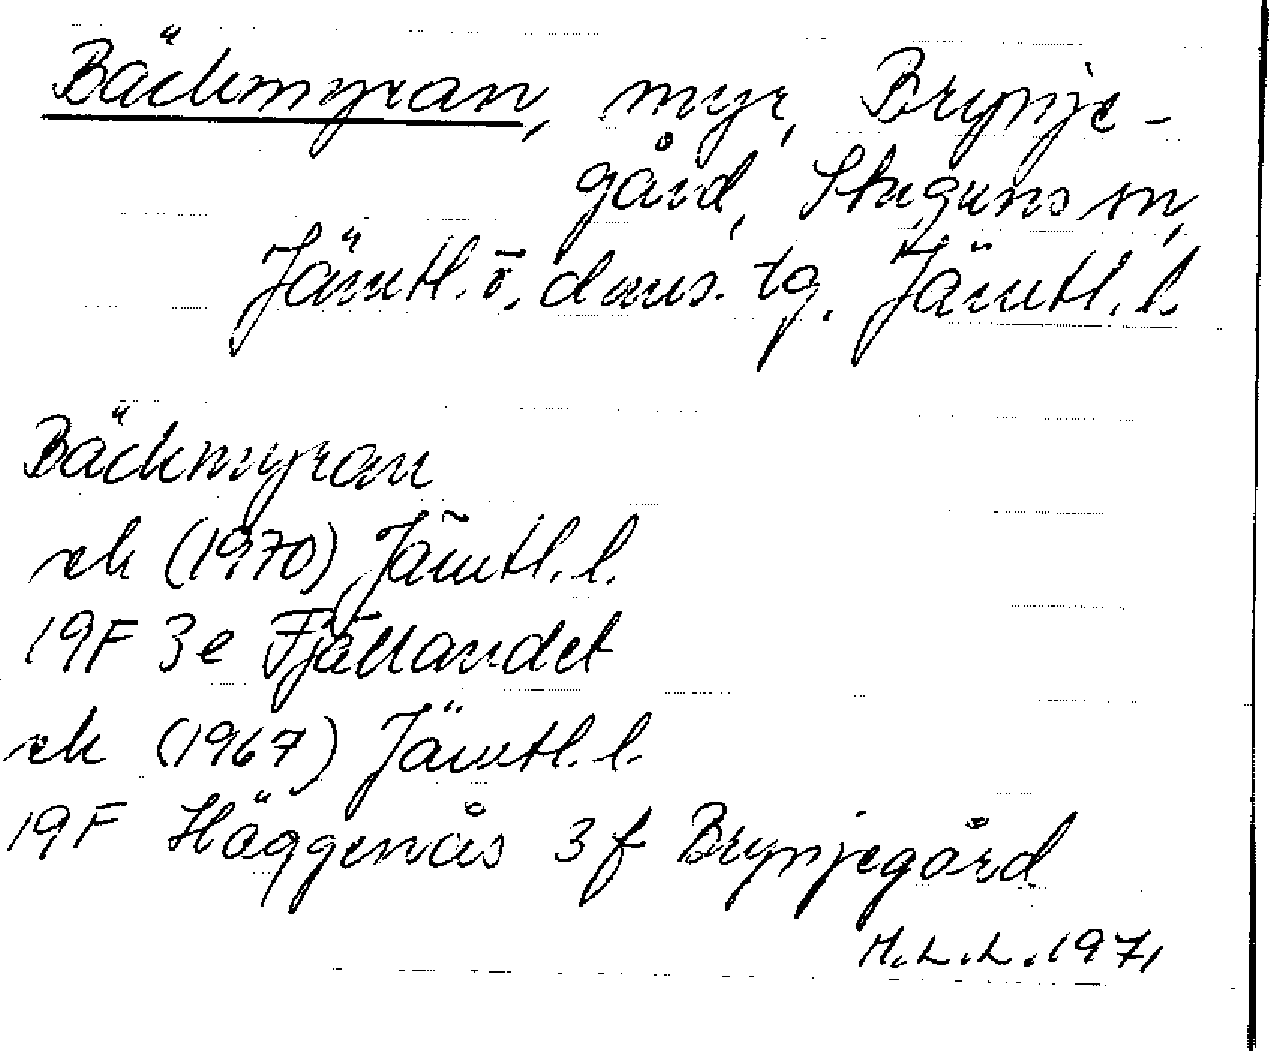 Bäckmyran, myr, Brynje-
gård, Stuguns sn,
Jämtl. ö. doms. tg. Jämtl. l.
Bäckmyran
ek (1970) Jämtl. l.
19F 3e Fjällandet
ek (1967) Jämtl. l.
19F Häggenås 3f Brynjegård
M.L.L. 1971